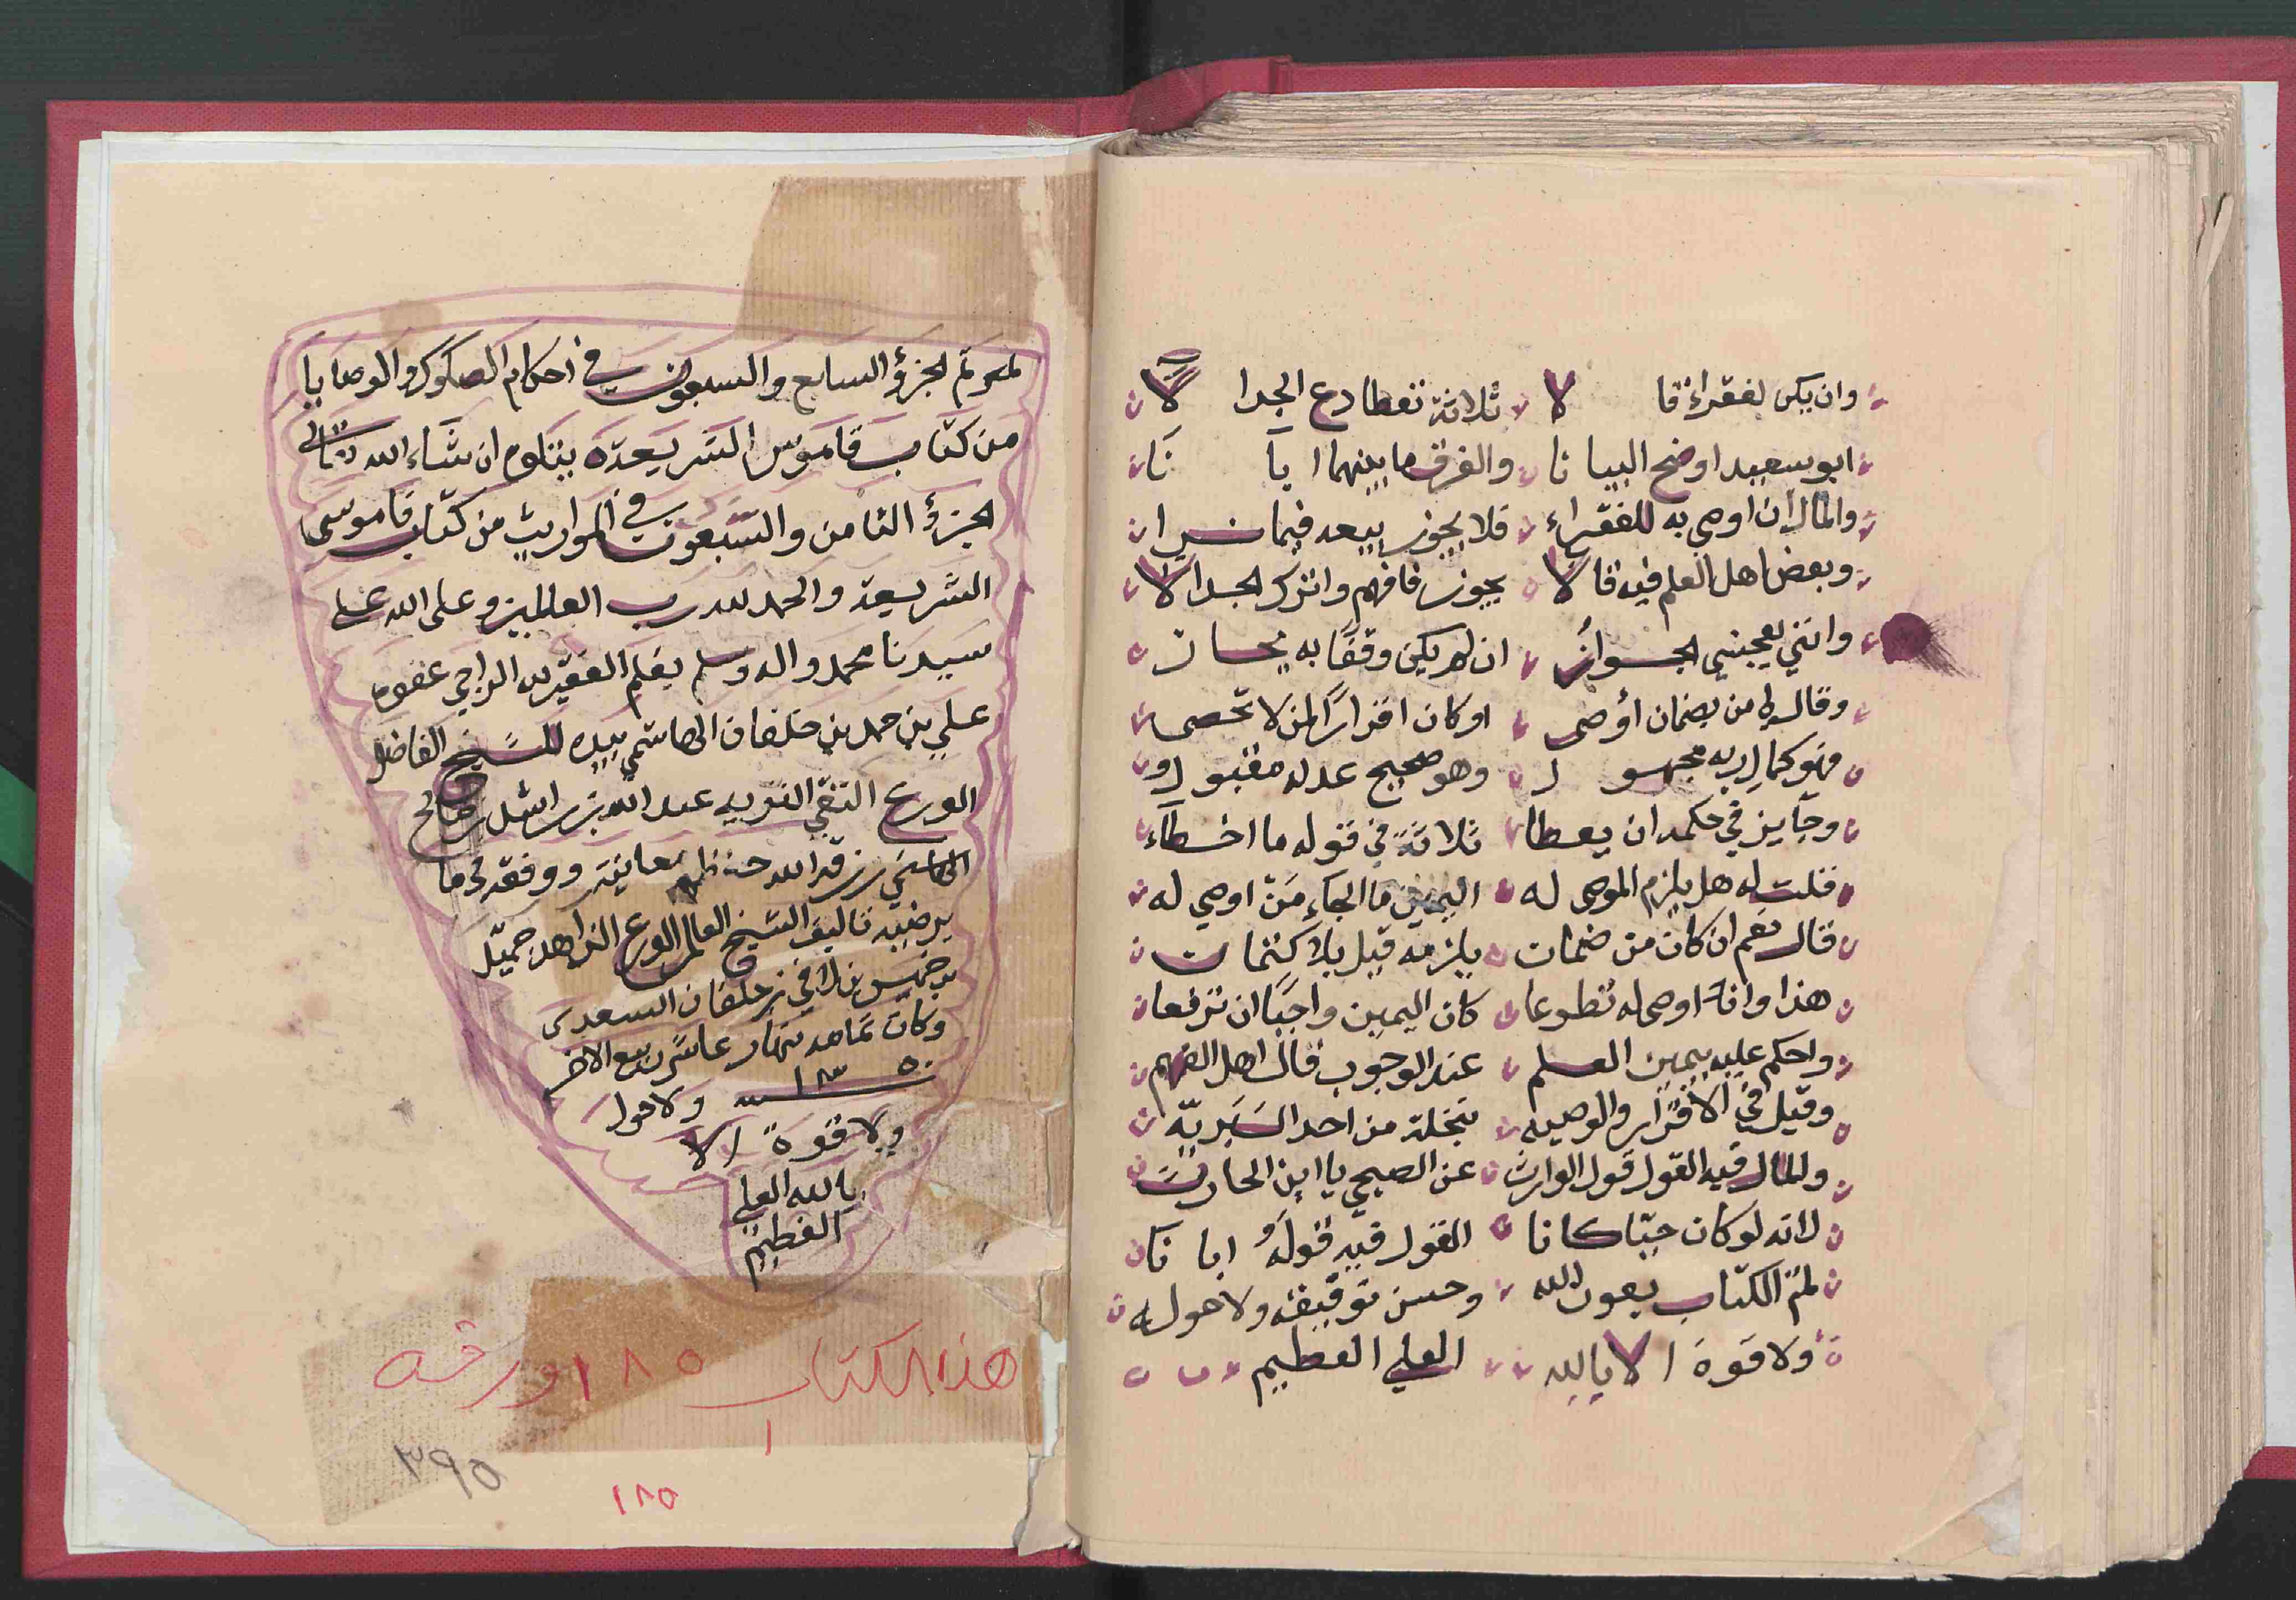 وان يكن لفقراء قا لا ثلاثة تعطا دع الجدا لا
ابو سعيد اوضح البيا نا والفرق ما بينهما ابا نا
والمال ان اوصى به للفقراء فلا يجوز بيعه فيما نرا
وبعض اهل العلم فيه قالا يجوز فافهم واترك الجدالا
وانني يعجبني الجواز ان لم يكن وقفًا به يحاز
وقال لي من بضمان أوصى او كان اقرارًا لمن لا تحصى
فهو كمال ربه مجهو ل وهو صحيح عدله مقبول
وجايز في حكمه ان يعطا ثلاثة في قوله ما اخطاء
قلت له هل يلزم الموصى له اليمين ما الجاء مَن اوصي له
قال نعم ان كان من ضمان يلزمه قيل بلا كتمان
هذا وانه اوصى له تطوعا كان اليمين واجبًا ان ترفعا
واحكم عليه بيمين العلم عند الوجوب قال اهل الفهم
وقيل في الاقرار والوصيه نحلة من احد البريّه
والمال فيه القول قول الوارث عن الصبحي يا ابن الحارث
لانه لو كان حيّا كانا القول فيه قولهُ ابا نا
تم الكتاب بعون الله وحسن توفيقه ولا حول
ولا قوة الا بالله العلي العظيم
تم الجزؤ السابع والسبعون في احكام الصكوك والوصايا
من كتاب قاموس الشريعة يتلوه ان شاء الله تعالى
الجزؤ الثامن والسبعون في المواريث من كتاب قاموس
الشريعة والحمد لله رب العالمين وصلى الله على
سيدنا محمد واله وسلم بقلم الفقير لله الراجي عفوه
علي بن حمد بن خلفان الهاشمي بيده للشيخ الفاضل
الورع التقي النزيه عبد الله بن راشد بن صالح
الهاشمي رزقه الله حفظ معانيه ووفقه لما
يرضيه تاليف الشيخ العالم الورع الزاهد جميّل
بن خميس بن لافي بن خلفان السعدي
وكان تمامه نهار عاشر ربيع الاخر
سنة ولا حول
ولا قوة الا
بالله العلي
العظيم
هذا الكتاب ١٨٥ ورقه
٣٩٥
١٨٥